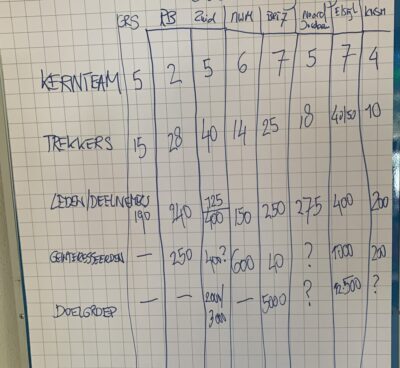 GRS RB Zuid NWM BRTZ Noord
KERNTEAM 5 2 5 6 7 5 7 4
TREKKERS 15 28 40 14 25 18 40/50 10
LEDEN/DEELNEMERS 190 240 125/400 150 250 275 400 200
GEINTERESSEERDEN — 250 400? 600 40 ? 1000 200
DOELGROEP — — 2000/3000 — 5000 ? 12.500 ?